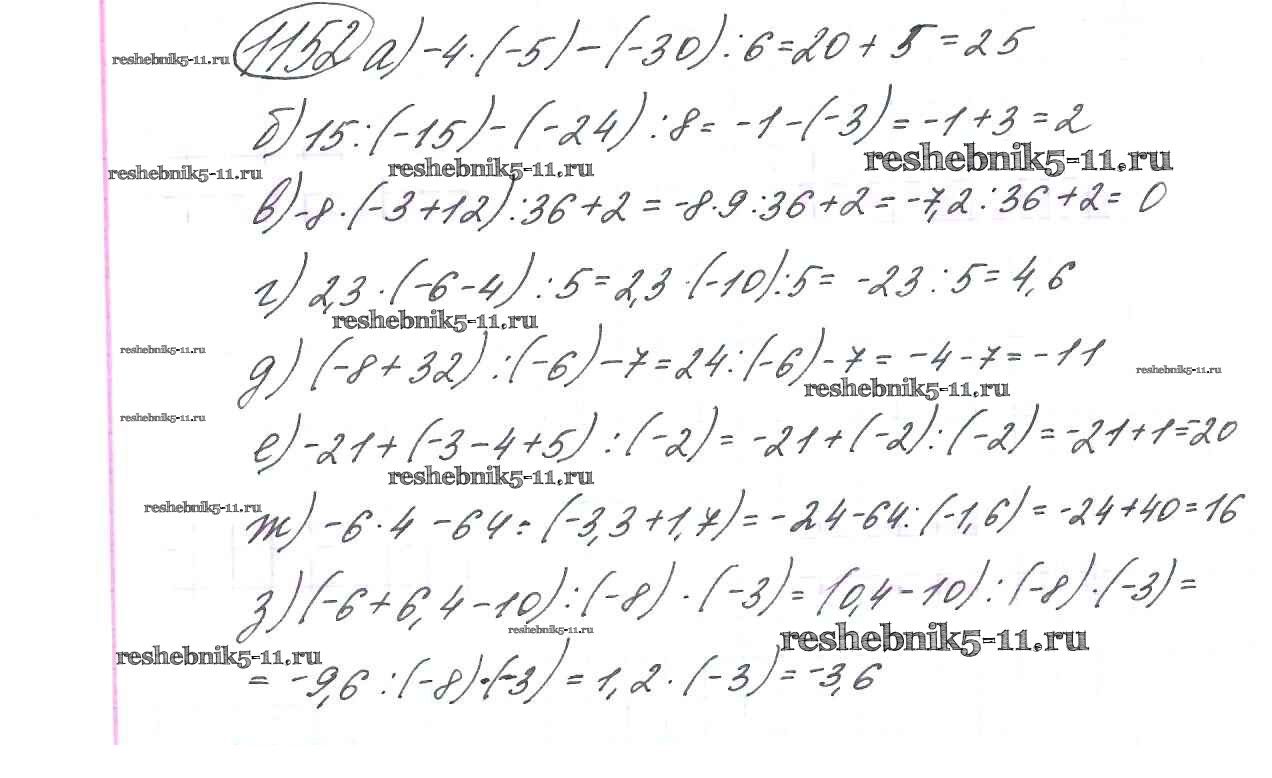 1152 а) -4·(-5)-(-30):6=20+5=25
reshebnik5-11.ru
б) 15:(-15)-(-24):8=-1-(-3)=-1+3=2
reshebnik5-11.ru reshebnik5-11.ru reshebnik5-11.ru
в) -8·(-3+12):36+2=-8·9:36+2=-7,2:36+2=0
г) 2,3·(-6-4):5=2,3·(-10):5=-23:5=4,6
reshebnik5-11.ru
reshebnik5-11.ru
д) (-8+32):(-6)-7=24:(-6)-7=-4-7=-11
reshebnik5-11.ru reshebnik5-11.ru
reshebnik5-11.ru
е) -21+(-3-4+5):(-2)=-21+(-2):(-2)=-21+1=-20
reshebnik5-11.ru
reshebnik5-11.ru
ж) -6·4-64:(-3,3+1,7)=-24-64:(-1,6)=-24+40=16
з) (-6+6,4-10):(-8)·(-3)=(0,4-10):(-8)·(-3)=
reshebnik5-11.ru reshebnik5-11.ru
reshebnik5-11.ru
=-9,6:(-8)·(-3)=1,2·(-3)=-3,6